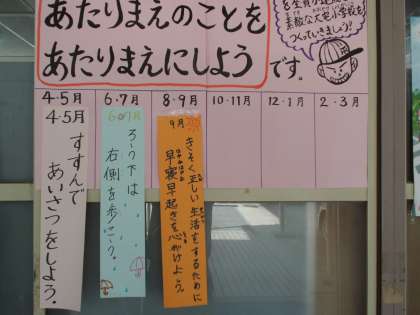 あたりまえのことを
あたりまえにしよう です。
素敵な大宅小学校を
つくっていきましょう!
4・5月 6・7月 8・9月 10・11月 12・1月 2・3月
4・5月
すすんで
あいさつをしよう。
6・7月
ろう下は
右側を歩こう。
9月
きそく正しい生活をするために
早寝早起きを心がけよう。